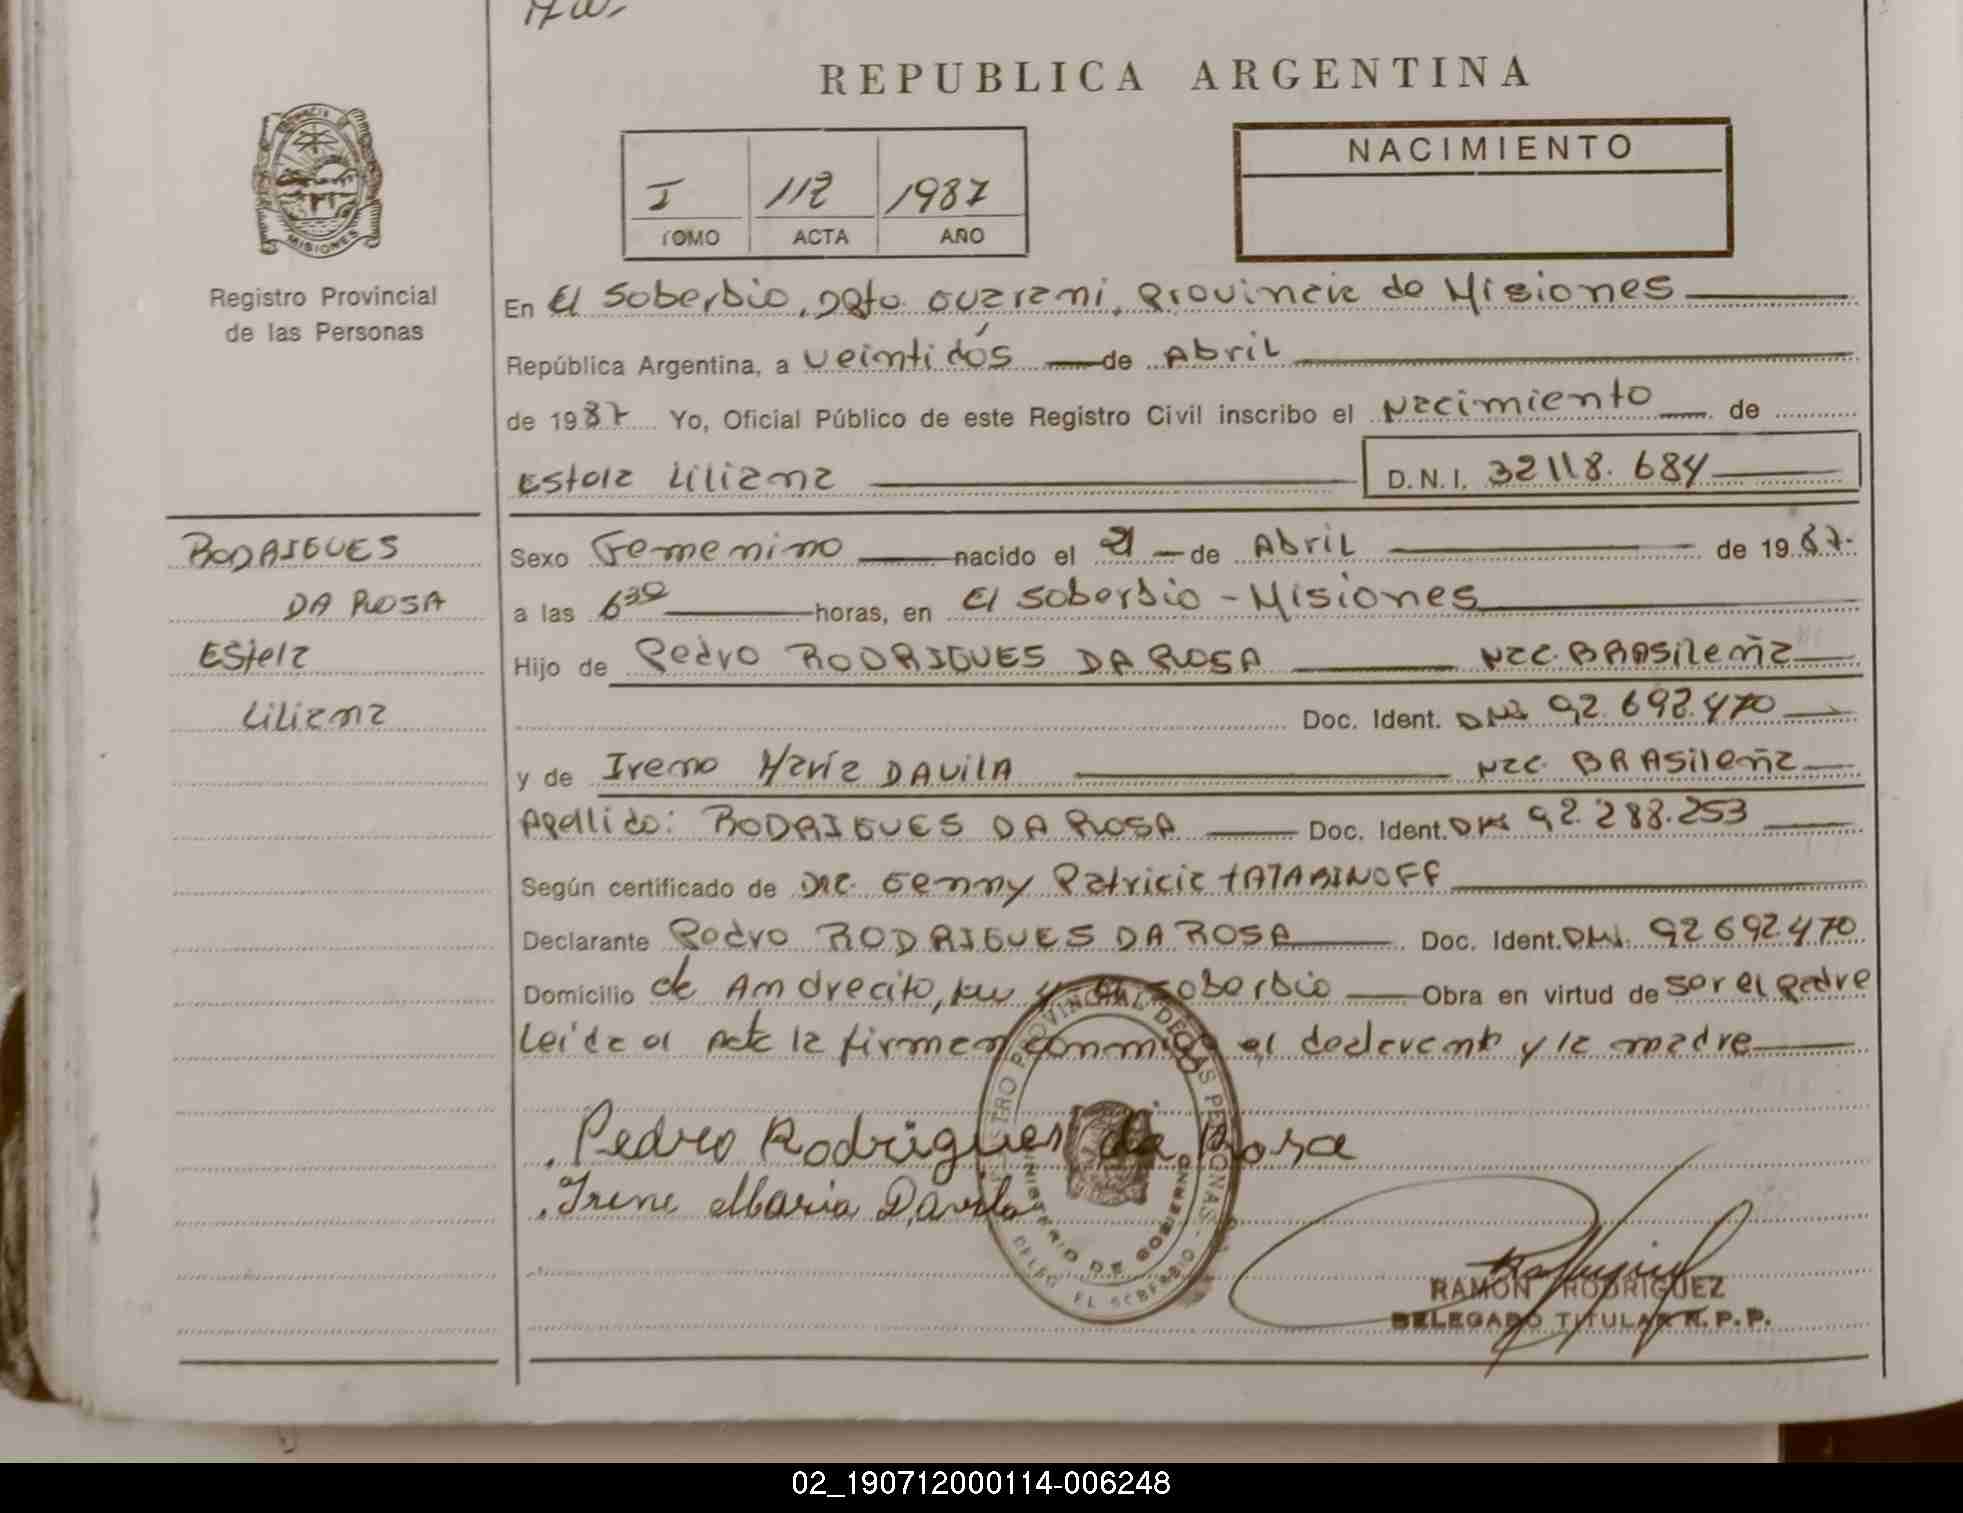 REPUBLICA ARGENTINA
MISIONES
Registro Provincial
de las Personas
I 112 1987
TOMO ACTA AÑO
NACIMIENTO
En El Soberbio, Dpto. Guarani, Provincia de Misiones
República Argentina, a Veintidós de Abril
de 1987 Yo, Oficial Público de este Registro Civil inscribo el Nacimiento de
Estela Liliana D.N.I. 32118.684
RODRIGUES
DA ROSA
Estela
Liliana
Sexo Femenino nacido el 21 de Abril de 1987
a las 6 30 horas, en El Soberbio - Misiones
Hijo de Pedro RODRIGUES DA ROSA Nac. BRASileña
Doc. Ident. DNI 92.692.470
y de Irene María DAVILA Nac. BRASileña
Apellido: RODRIGUES DA ROSA Doc. Ident. DNI 92.288.253
Según certificado de Dra. Genny Patricia
Declarante Pedro RODRIGUES DA ROSA Doc. Ident. DNI. 92692.470
Domicilio de Andrecito, Soberbio Obra en virtud de ser el padre
Leída el Acta la firman conmigo el declarante y la madre
Pedro Rodrigues da Rosa
Irene Maria Davila
REGISTRO PROVINCIAL DE LAS PERSONAS
MINISTERIO DE GOBIERNO
DELEG. EL SOBERBIO
RAMON RODRIGUEZ
DELEGADO TITULAR R.P.P.
02_190712000114-006248